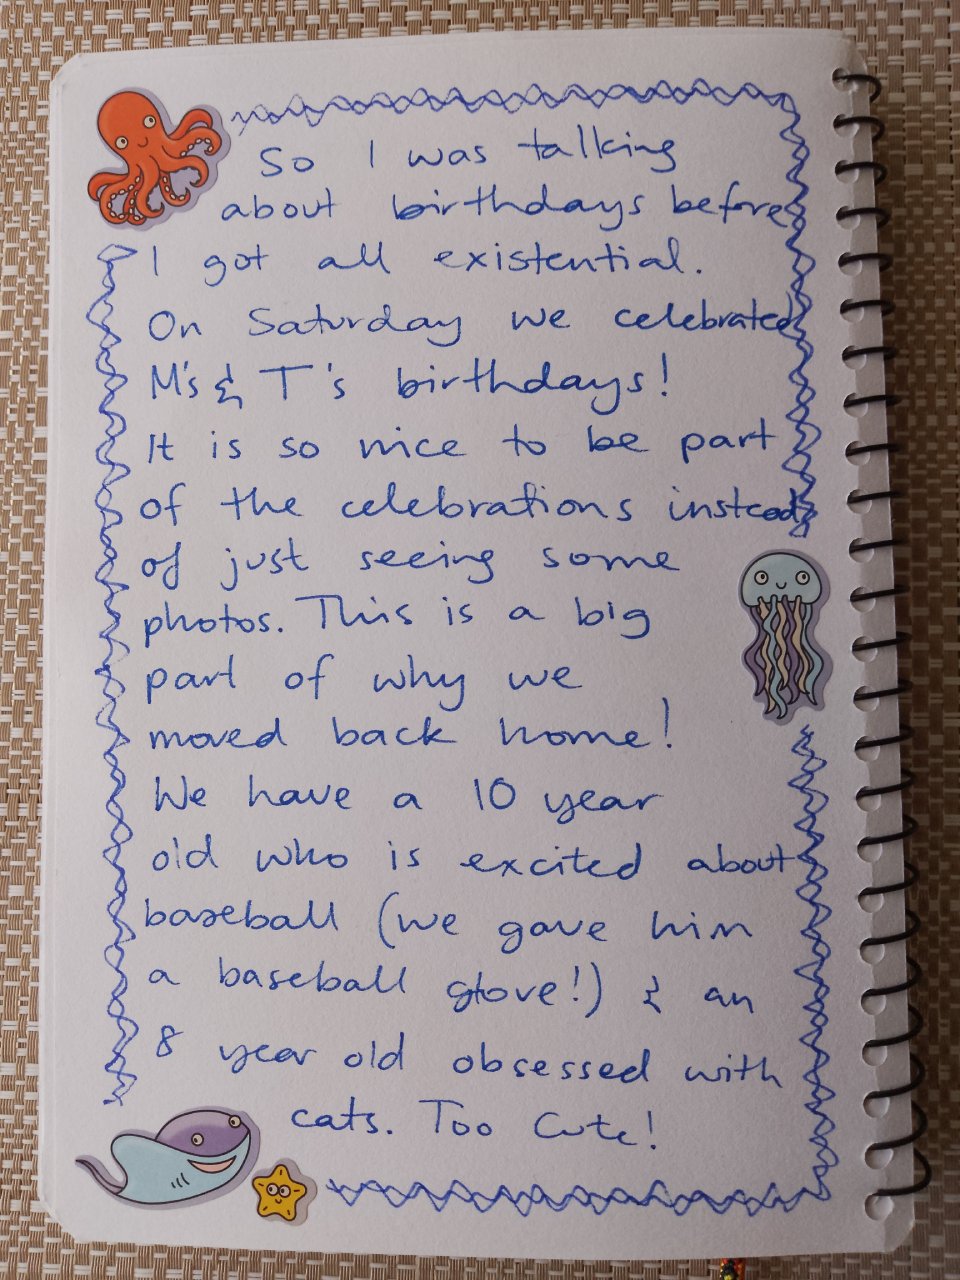 So I was talking
about birthdays before
I got all existential.
On Saturday we celebrated
M's & T's birthdays!
It is so nice to be part
of the celebrations instead
of just seeing some
photos. This is a big
part of why we
moved back home!
We have a 10 year
old who is excited about
baseball (we gave him
a baseball glove!) & an
8 year old obsessed with
cats. Too cute!